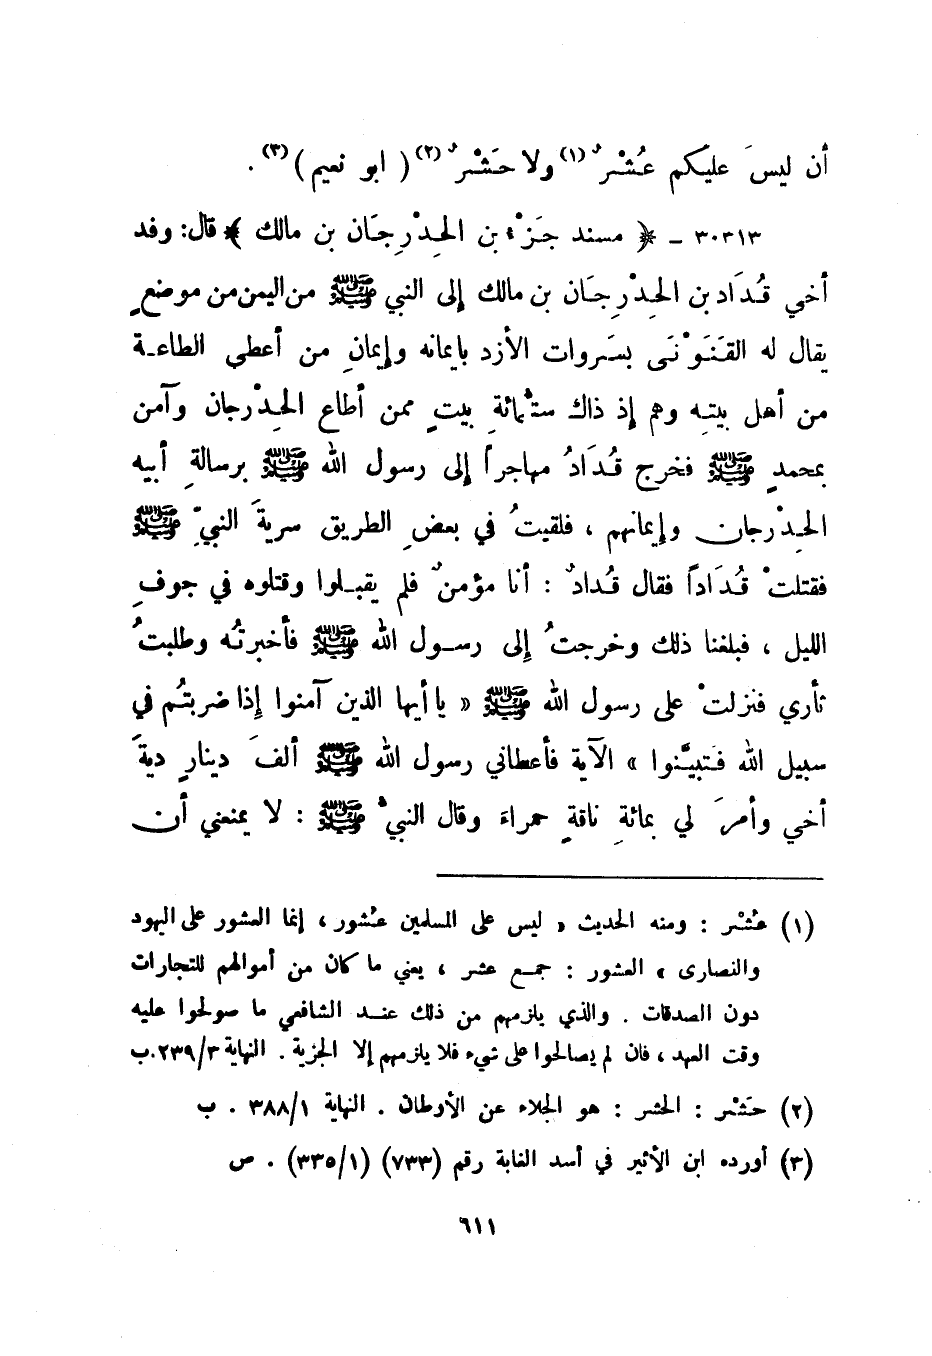 أن ليسَ عليكم عُشْرٌ (١) ولا حَشْرٌ (٢) ( ابو نعيم ) (٣) .
٣٠٣١٣ - ﴿ مسند جَزْء بن الحِدْرِجَان بن مالك ﴾ قال : وفد
أخي قُدَاد بن الحِدْرِجَان بن مالك إلى النبي ﷺ من اليمن من موضعٍ
يقال له القَنَوْنَى بسَروات الأزد بايمانه وإيمانِ من أعطى الطاعة
من أهل بيته وهم إذ ذاك ستُمائةِ بيتٍ ممن أطاع الحِدْرجان وآمن
بمحمدٍ ﷺ فخرج قُدَادُ مهاجراً إلى رسول الله ﷺ برسالةِ أبيه
الحِدْرجان وإيمانهم ، فلقيتُ في بعضِ الطريق سريةَ النبيِّ ﷺ
فقتلتْ قُدَاداً فقال قُدادٌ : أنا مؤمنٌ فلم يقبلوا وقتلوه في جوفِ
الليل ، فبلغنا ذلك وخرجتُ إلى رسول الله ﷺ فأخبرتُه وطلبتُ
ثأري فنزلتْ على رسول الله ﷺ « يا أيها الذين آمنوا إذا ضربتُم في
سبيل الله فتبيَّنوا » الآية فأعطاني رسول الله ﷺ ألفَ دينارٍ ديةَ
أخي وأمرَ لي بمائةِ ناقةٍ حمراءَ وقال النبيُّ ﷺ : لا يمنعني أن
(١) عُشْر : ومنه الحديث « ليس على المسلمين عُشور ، إنما العشور على اليهود
والنصارى » العشور : جمع عشر ، يعني ما كان من أموالهم للتجارات
دون الصدقات . والذي يلزمهم من ذلك عند الشافعي ما صولحوا عليه
وقت العهد ، فان لم يصالحوا على شيء فلا يلزمهم إلا الجزية . النهاية ٢٣٩/٣ . ب
(٢) حَشْر : الحشر : هو الجلاء عن الأوطان . النهاية ٣٨٨/١ . ب
(٣) أورده ابن الأثير في أسد الغابة رقم (٧٣٣) (٣٣٥/١) . ص
٦١١